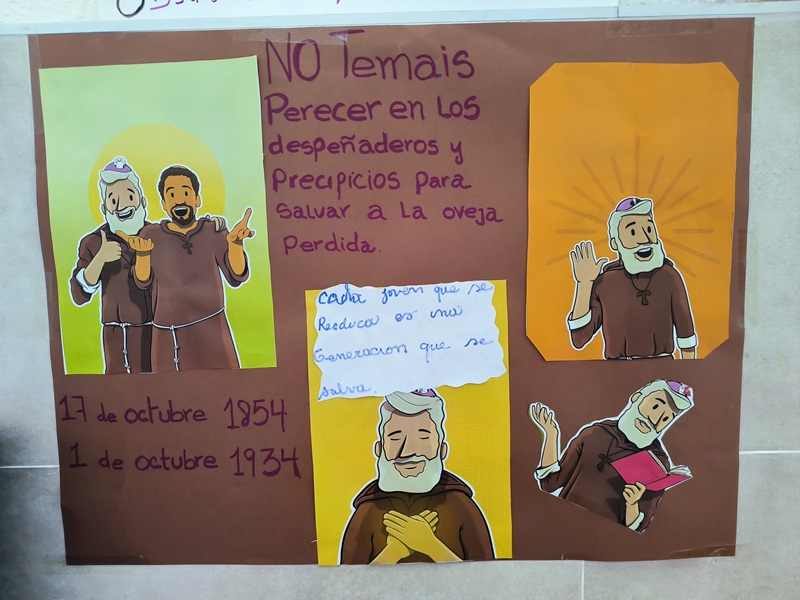 NO Temais
Perecer en los
despeñaderos y
precipicios para
salvar a la oveja
perdida.
cada joven que se
Reeduca es una
Generacion que se
salva.
17 de octubre 1854
1 de octubre 1934